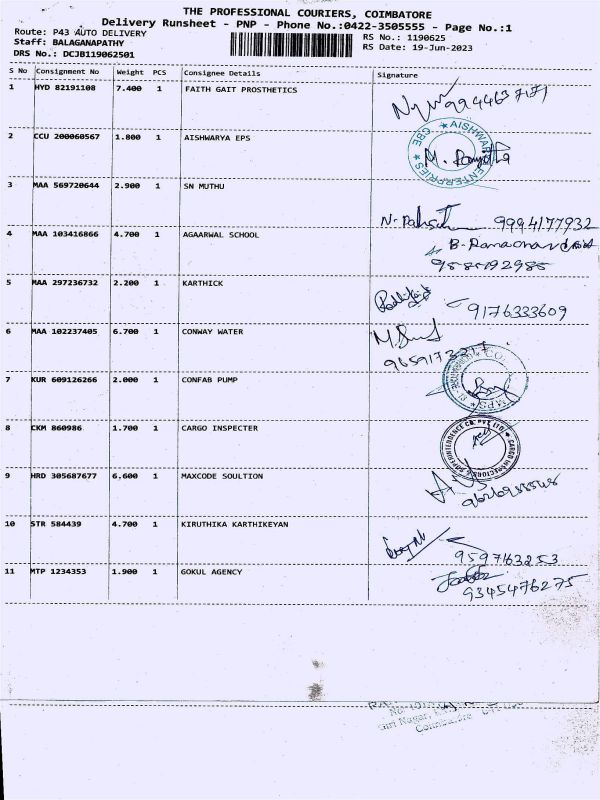 THE PROFESSIONAL COURIERS, COIMBATORE
Delivery Runsheet - PNP - Phone No.:0422-3505555 - Page No.:1
Route: P43 AUTO DELIVERY
Staff: BALAGANAPATHY
DRS No.: DCJB119062501
RS No.: 1190625
RS Date: 19-Jun-2023
S No Consignment No Weight PCS Consignee Details Signature
1 HYD 82191108 7.400 1 FAITH GAIT PROSTHETICS
2 CCU 200060567 1.800 1 AISHWARYA EPS
CBE ★ AISHWARYA ENTERPRISES ★
3 MAA 569720644 2.900 1 SN MUTHU
9994177932
4 MAA 103416866 4.700 1 AGAARWAL SCHOOL
B. Ramachandran
5 MAA 297236732 2.200 1 KARTHICK
9176333609
6 MAA 102237405 6.700 1 CONWAY WATER
7 KUR 609126266 2.000 1 CONFAB PUMP
8 CKM 860986 1.700 1 CARGO INSPECTER
9 HRD 305687677 6.600 1 MAXCODE SOULTION
10 STR 584439 4.700 1 KIRUTHIKA KARTHIKEYAN
9597163253
11 MTP 1234353 1.900 1 GOKUL AGENCY
9345476275
Giri Nagar,
Coimbatore